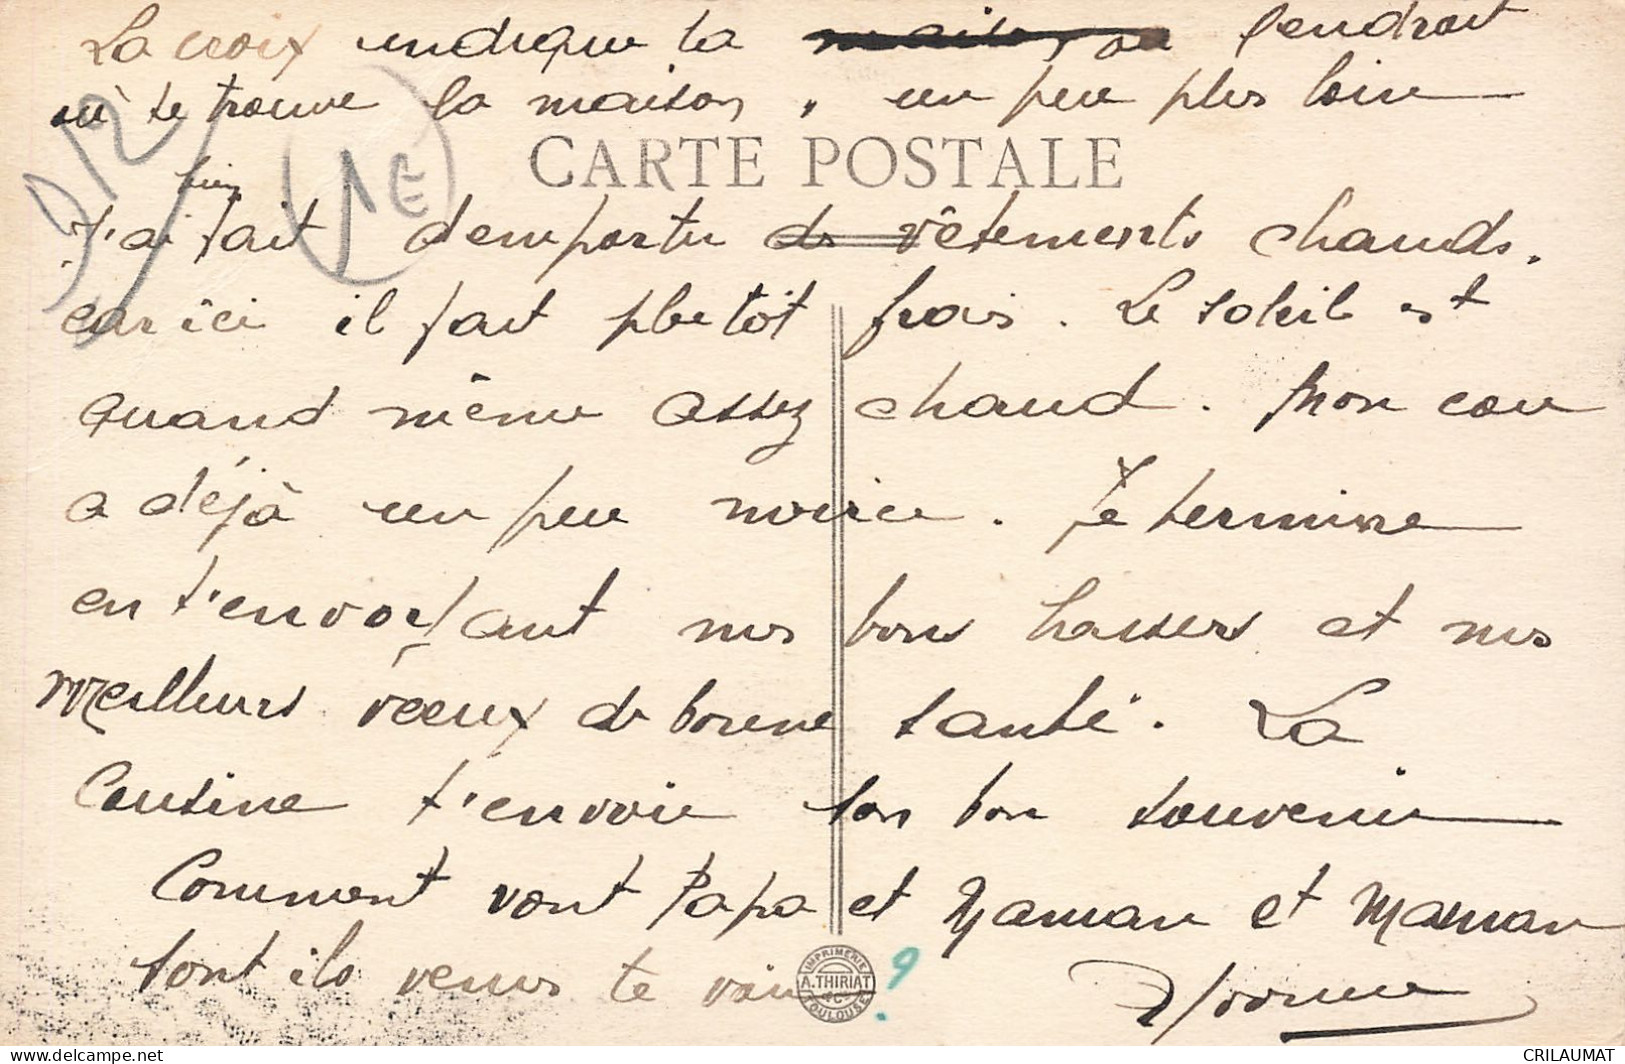 La croix indique la maison, ou l'endroit
où se trouve la maison, un peu plus loin
CARTE POSTALE
912
1E
bien
J'ai fait d'emporter de vêtements chauds.
car ici il fait plutôt frais. Le soleil est
quand même assez chaud. Mon cou
a déjà un peu noirci. Je termine
en t'envoyant nos bons baisers et nos
meilleurs vœux de bonne santé. La
Cousine t'envoie son bon souvenir
Comment vont Papa et Maman et Maman
sont ils venus te voir ?
Yvonne
IMPRIMERIE
A. THIRIAT
& Cie
TOULOUSE
CRILAUMAT